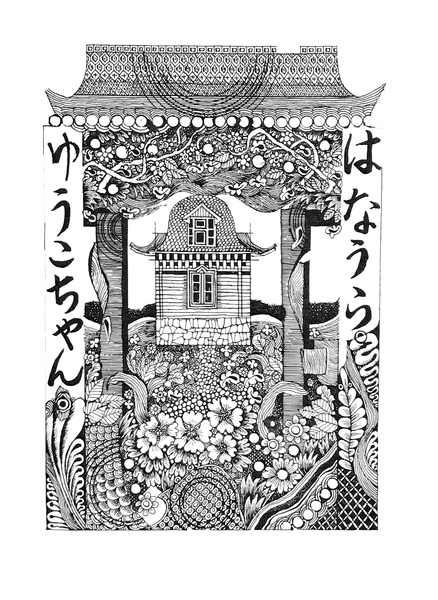 はなうら。
ゆうこちゃん